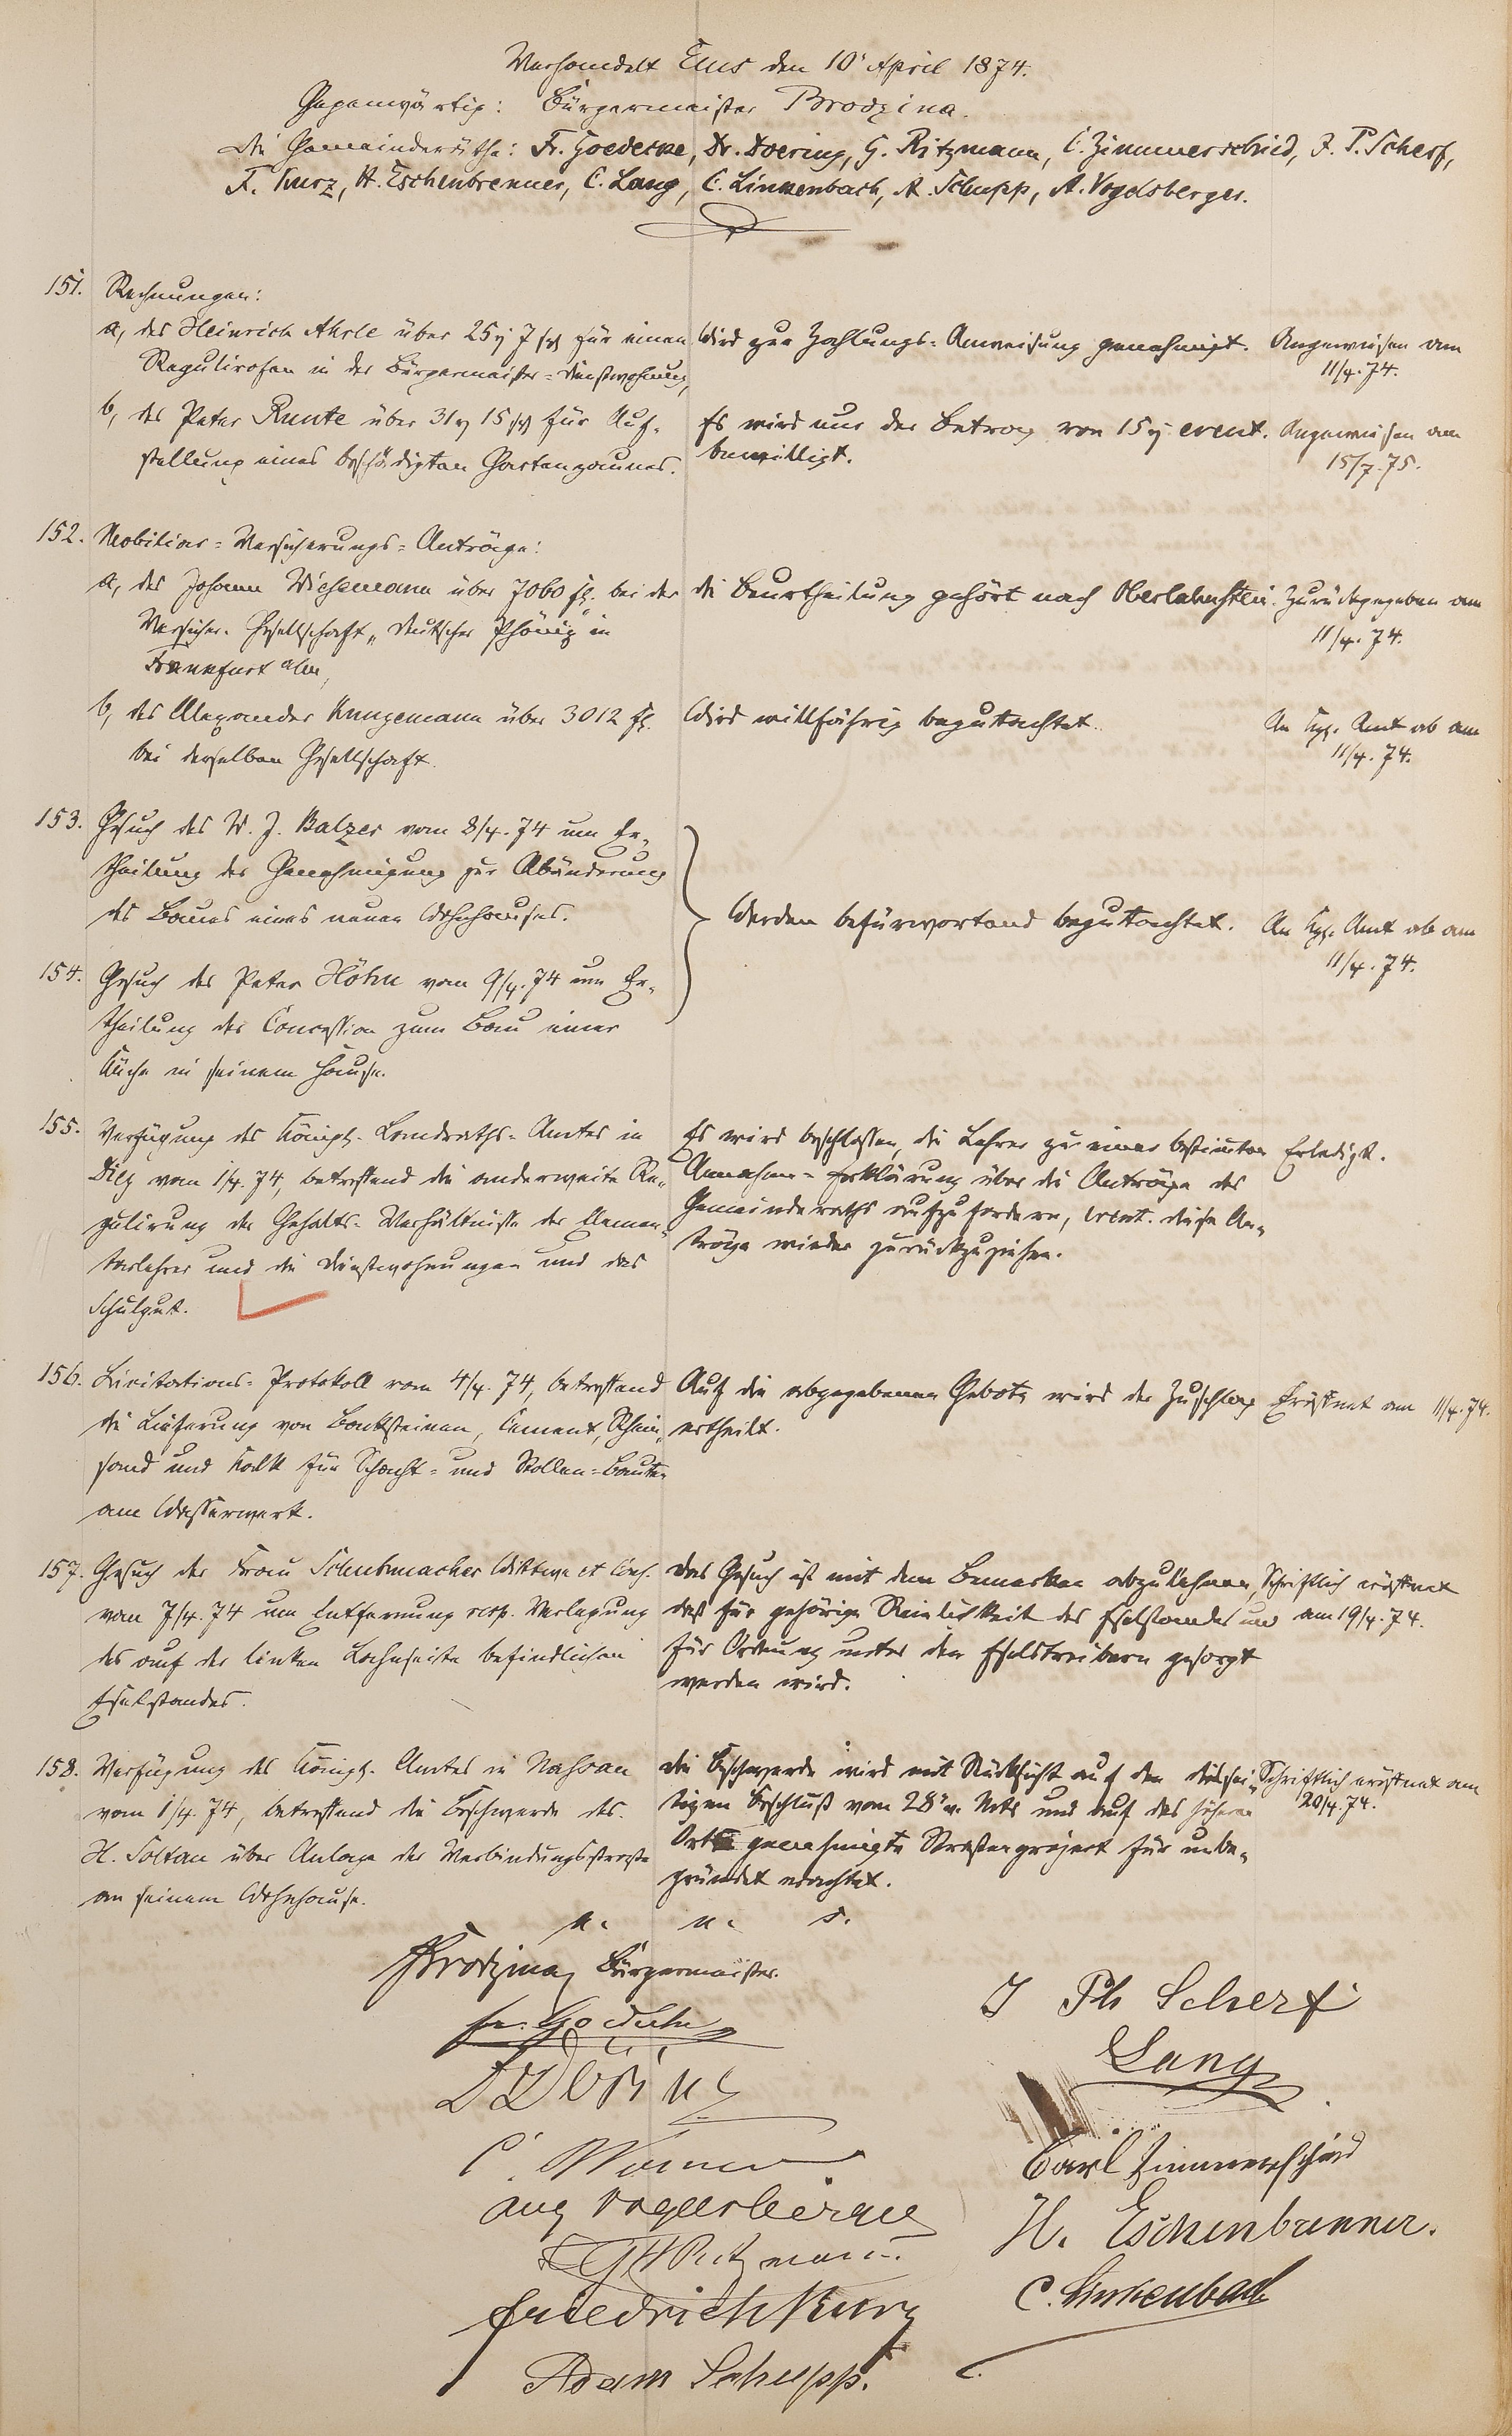 Verhandelt Ems den 10t April 1874.
Gegenwärtig: Bürgermeister Brodzina.
Die Gemeinderäthe: Fr. Goedecke, Dr. Doering, G. Ritzmann, C. Zimmerschied, J. P. Scherf,
F. Kurz, H. Eschenbrenner, C. Lang, C. Linkenbach, A. Schupp, A. Vogelsberger.
151. Rechnungen:
a, des Heinrich Ahrle über 25 7 für einen
Regulirofen in der Bürgermeister-Dienstwohnung,
Wird zur Zahlungs-Anweisung genehmigt.
Angewiesen am
11/4.74.
b, des Peter Runte über 31 15 für Auf-
stellung eines beschädigten Gartenzaunes.
Es wird nur der Betrag von 15 event.
bewilligt.
Angewiesen am
15/7.75.
152. Mobiliar-Versicherungs-Anträge:
a, des Johann Wiesemann über 7060 fl. bei der
Versicher. Gesellschaft „Deutscher Phönix" in
Frankfurt a/m,
Die Beurtheilung gehört nach Oberlahnstein.
Zurückgegeben am
11/4.74.
b, des Alexander Kungemann über 3012 fl.
bei derselben Gesellschaft.
Wird willfährig begutachtet.
An Kgl. Amt ab am
11/4.74.
153. Gesuch des W. J. Balzer vom 8/4.74 um Er-
theilung der Genehmigung zur Abänderung
des Baues eines neuen Wohnhauses.
154. Gesuch des Peter Höhn vom 9/4.74 um Er-
theilung der Concession zum Bau einer
Küche in seinem Hause.
Werden befürwortend begutachtet.
An Kgl. Amt ab am
11/4.74.
155. Verfügung des Königl. Landraths-Amtes in
Diez vom 1/4.74, betreffend die anderweite Re-
gulirung der Gehalts-Verhältnisse der Elemen-
tarlehrer und die Dienstwohnungen und das
Schulgut.
Es wird beschlossen, die Lehrer zu einer bestimmten
Annahme-Erklärung über die Anträge des
Gemeinderaths aufzufordern, event. diese An-
träge wieder zurückzuziehen.
Erledigt.
156. Licitations-Protokoll vom 4/4.74, betreffend
die Lieferung von Backsteinen, Cement, Rhein-
sand und Kalk für Schacht- und Stollen-Bauten
am Wasserwerk.
Auf die abgegebenen Gebote wird der Zuschlag
ertheilt.
Eröffnet am 11/4.74.
157. Gesuch der Frau Schuhmacher Wittwe et Cons.
vom 7/4.74 um Entfernung resp. Verlegung
des auf der linken Lahnseite befindlichen
Eselstandes.
Das Gesuch ist mit dem Bemerken abzulehnen,
daß für gehörige Reinlichkeit des Eselstandes und
für Ordnung unter den Eselstreibern gesorgt
werden wird.
Schriftlich eröffnet
am 19/4.74.
158. Verfügung des Königl. Amtes in Nassau
vom 1/4.74, betreffend die Beschwerde des
H. Soltau über Anlage der Verbindungsstraße
an seinem Wohnhause.
Die Beschwerde wird mit Rücksicht auf den diessei-
tigen Beschluß vom 28t v. Mts und auf das höheren
Orts genehmigte Straßenproject für unbe-
gründet erachtet.
Schriftlich eröffnet am
20/4.74.
u.
s.
Brodzina, Bürgermeister.
Fr. Goedecke
Dr Döring
aug Vogelsberger
G H Ritzmann
Friedrich Kurz
Adam Schupp.
J Ph Scherf
Lang
Carl Zimmerschied
H. Eschenbrenner.
C. Linkenbach